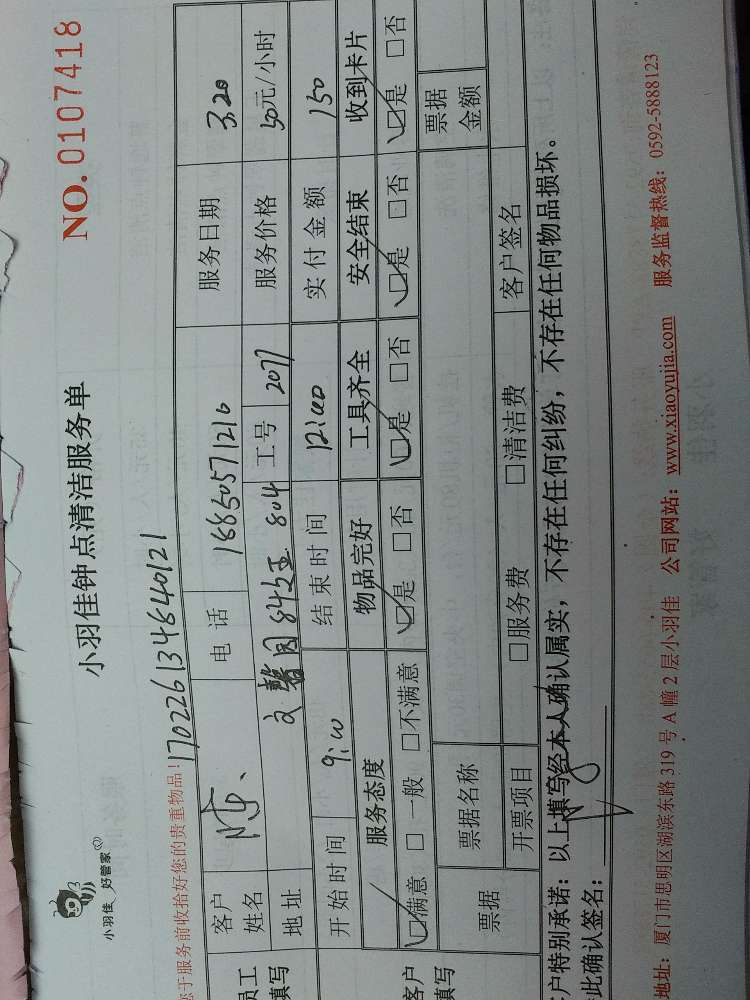 小羽佳 好管家
小羽佳钟点清洁服务单
NO.0107418
您于服务前收拾好您的贵重物品！
170226134640121
员工填写
客户姓名 陈、 电话 18850571216 服务日期 3.20
地址 文馨园84之五 804 工号 2077 服务价格 50元/小时
开始时间 9:00 结束时间 12:00 实付金额 150
客户填写
服务态度 物品完好 工具齐全 安全结束 收到卡片
☑满意 □一般 □不满意 ☑是 □否 ☑是 □否 ☑是 □否 ☑是 □否
票据 票据名称 票据金额
开票项目 □服务费 □清洁费 客户签名
客户特别承诺：以上填写经本人确认属实，不存在任何纠纷，不存在任何物品损坏。
此确认签名：
地址：厦门市思明区湖滨东路 319 号 A 幢 2 层小羽佳 公司网站：www.xiaoyujia.com 服务监督热线：0592-5888123